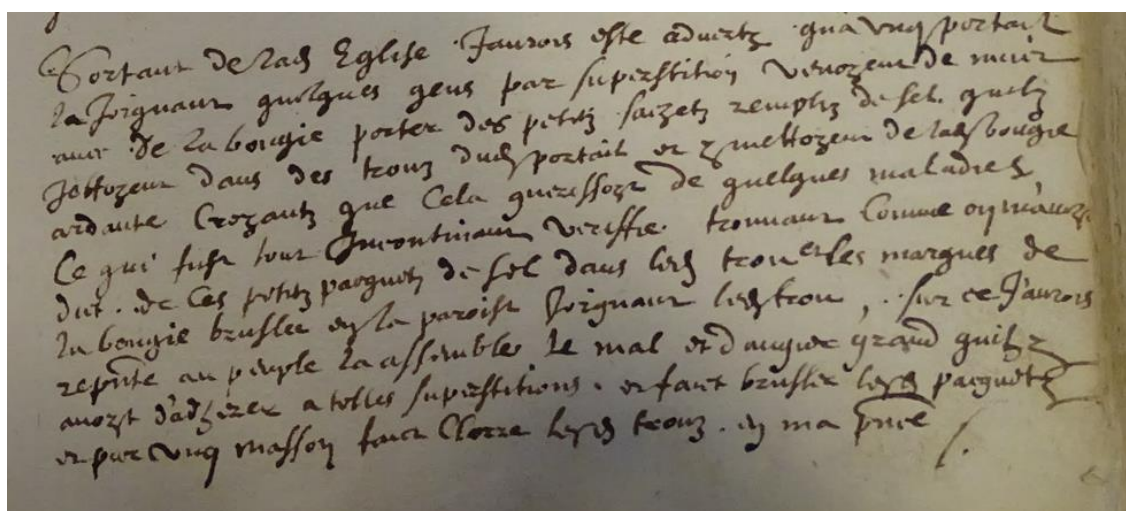 Sortant de lad Eglise Jaurois este aduertz qua vng portail
la Joignant quelques gens par superstition venozent de nuict
auec de la bougie porter des petitz saczetz remplis de sel quilz
Jettozent dans des trouz dud portail et y mettozent de lad bougie
ardante Crozantz que Cela guerissozt de quelques maladies
Ce qui fust tout Incontinant veriffie trouuant Comme on mauozt
dict . de Ces petitz pacquetz de sel dans lesd trou et les marques de
la bougie bruslee en la paroist Joignant lesd trou , . sur ce J'aurois
repnte au peuple la assemble le mal et dangier grand quil z
auozt d'adherer a telles superstitions . et faict brusler lesd pacquetz
et par vng masson faict Clorre lesd trouz . en ma pnce